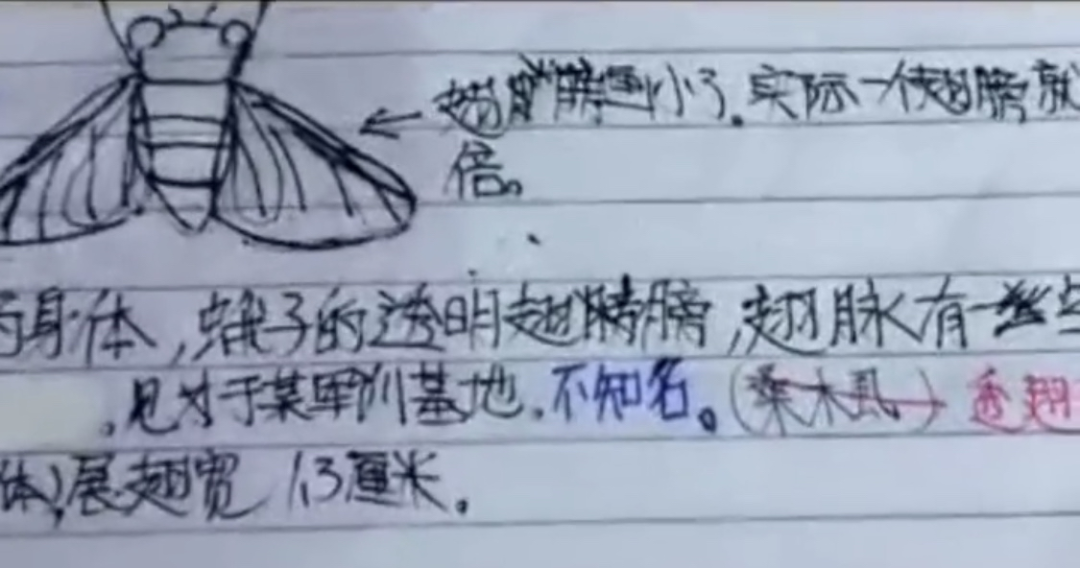 翅膀画小了。实际一个翅膀就
倍。
的身体，蛾子的透明翅膀，翅脉有一些
，见对于某军训基地。不知名。（桑木虱）透翅
体）展翅宽 1.3厘米。